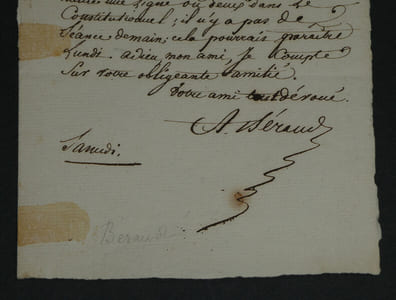 une ligne ou deux dans le
Constitutionnel ; il n'y a pas de
Séance demain ; cela pourrais paraître
Lundi. adieu, mon ami, Je Compte
Sur votre obligeante amitié.
votre ami tout dévoué.
A. Béraud
Samedi.
Béraud